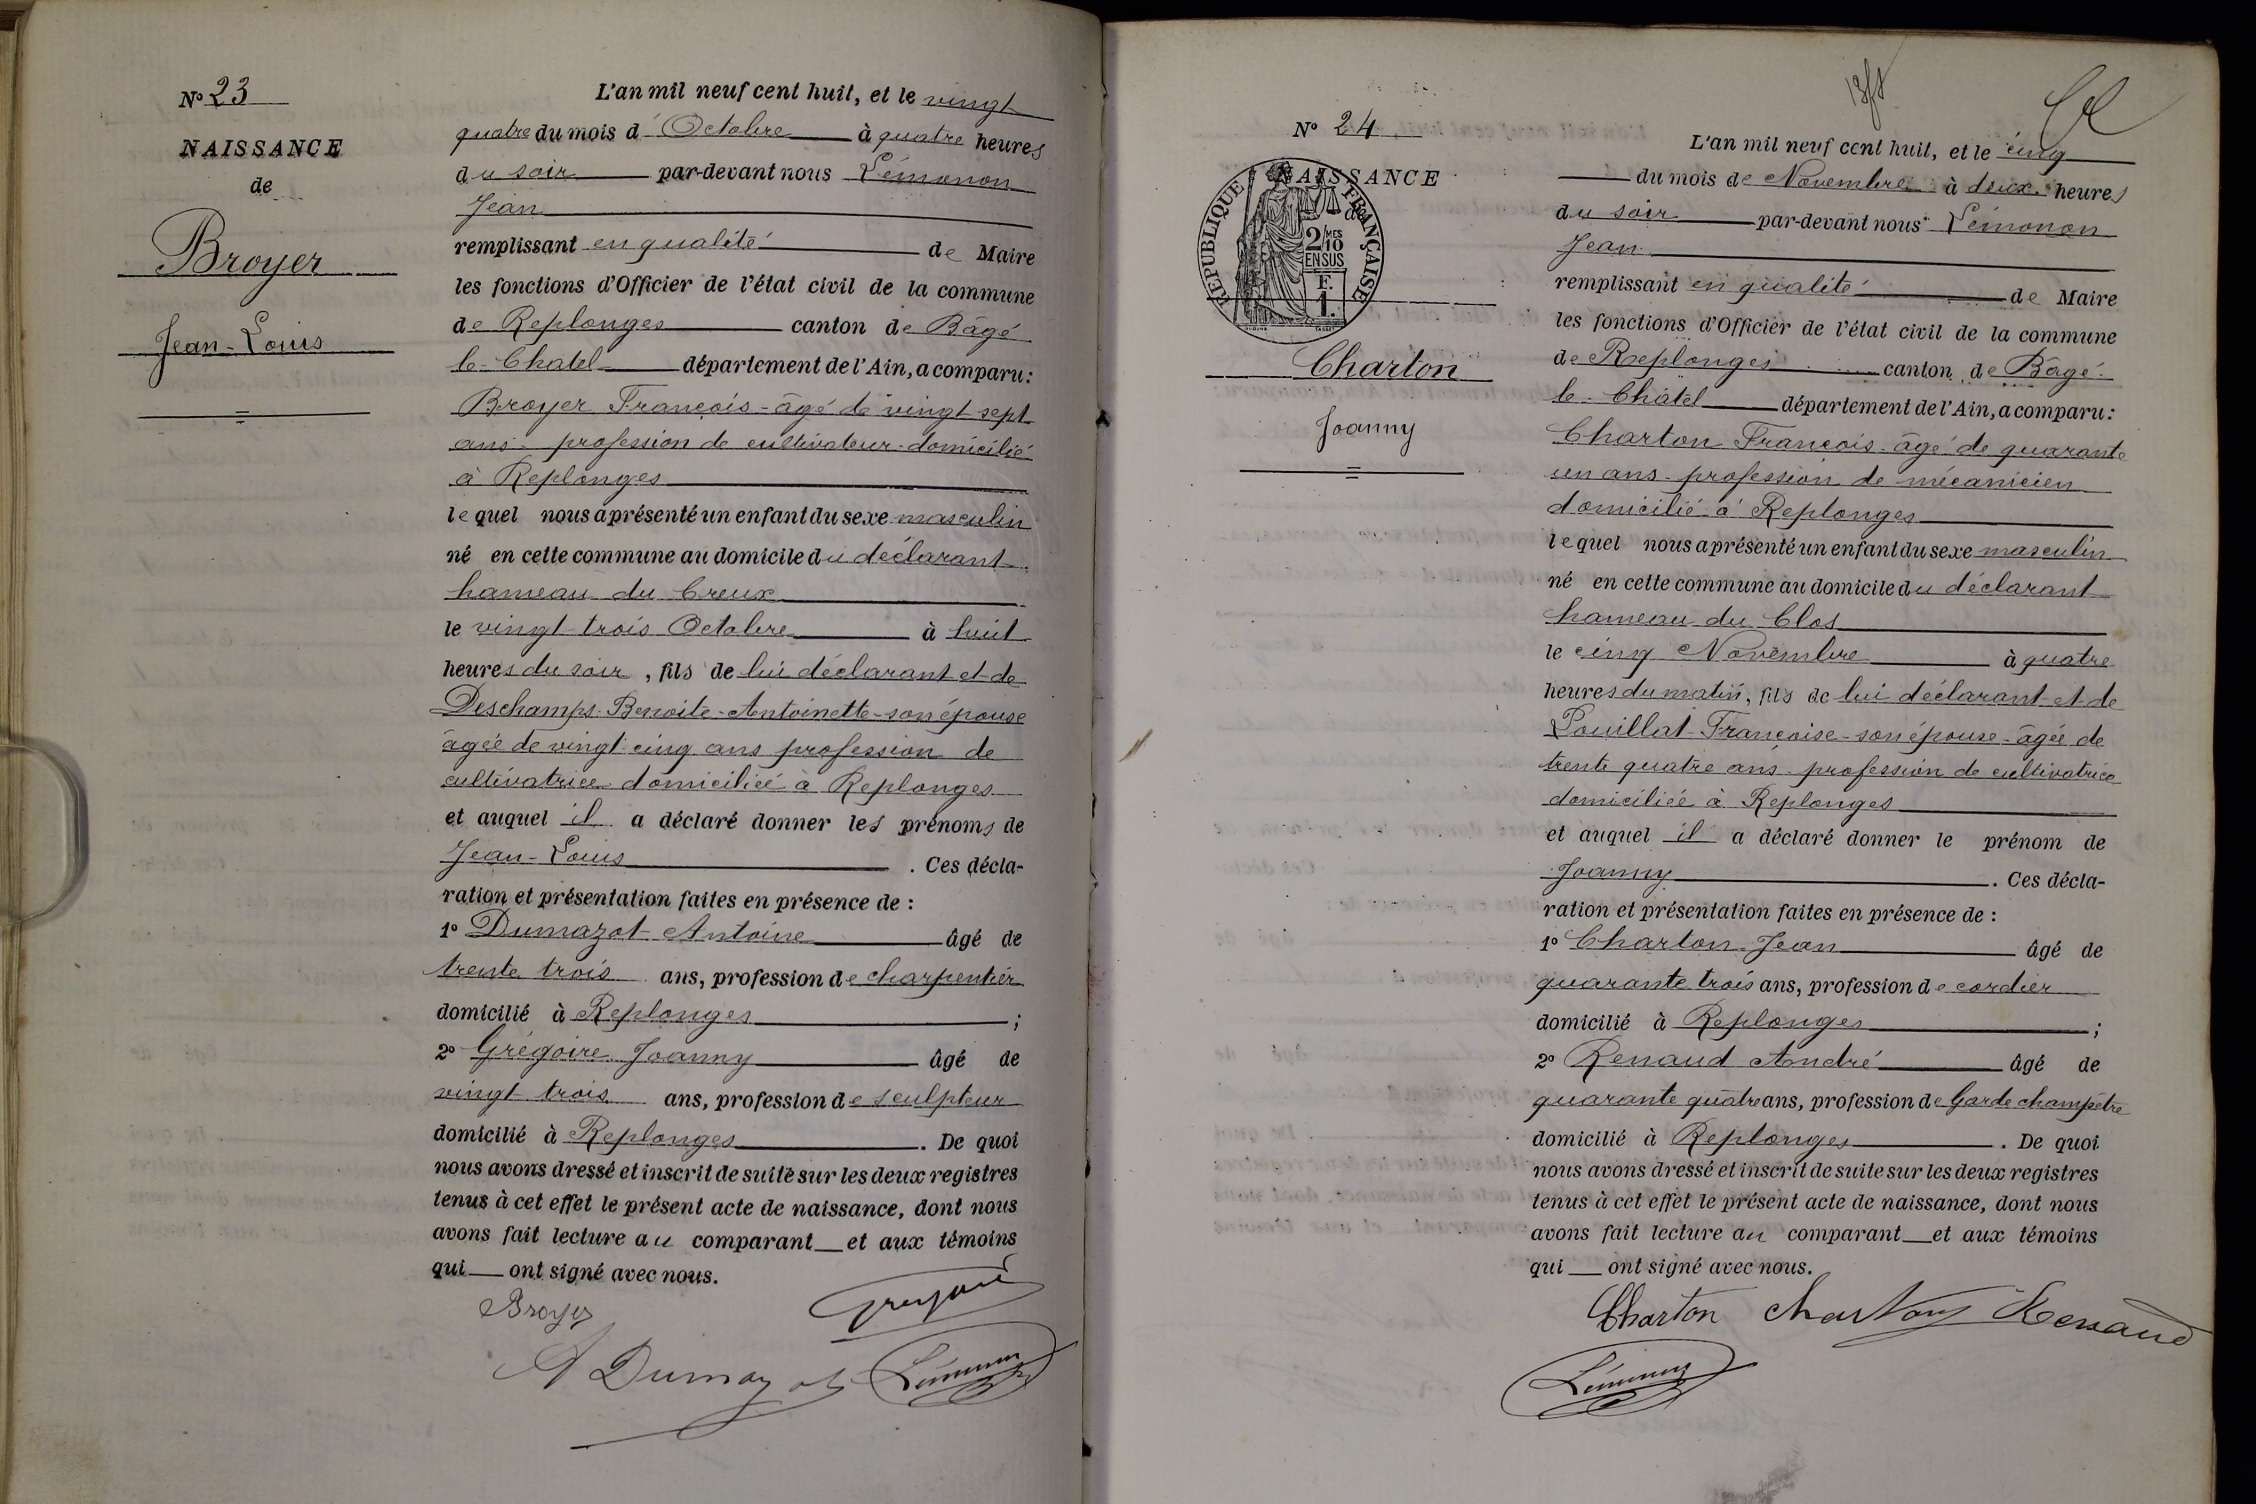 N° 23
NAISSANCE
de
Broyer
Jean-Louis
L'an mil neuf cent huit, et le vingt
quatre du mois d'Octobre à quatre heures
du soir par-devant nous Lémonon
Jean
remplissant en qualité de Maire
les fonctions d'Officier de l'état civil de la commune
de Replonges canton de Bâgé
le-Chatel département de l'Ain, a comparu :
Broyer François - âgé de vingt sept
ans - profession de cultivateur - domicilié
à Replonges
lequel nous a présenté un enfant du sexe masculin
né en cette commune au domicile du déclarant
hameau du Creux
le vingt trois Octobre à huit
heures du soir, fils de lui déclarant et de
Deschamps Benoite - Antoinette - son épouse
âgée de vingt cinq ans profession de
cultivatrice domiciliée à Replonges
et auquel il a déclaré donner les prénoms de
Jean-Louis . Ces décla-
ration et présentation faites en présence de :
1° Dumazot Antoine âgé de
trente trois ans, profession de charpentier
domicilié à Replonges ;
2° Grégoire Joanny âgé de
vingt trois ans, profession de sculpteur
domicilié à Replonges . De quoi
nous avons dressé et inscrit de suite sur les deux registres
tenus à cet effet le présent acte de naissance, dont nous
avons fait lecture au comparant et aux témoins
qui ont signé avec nous.
Broyer Gregoire
A Dumazot Lémonon
N° 24
NAISSANCE
de
RÉPUBLIQUE FRANÇAISE
2/10 MES
EN SUS
F.
1.
Charton
Joanny
L'an mil neuf cent huit, et le cinq
du mois de Novembre à deux heures
du soir par-devant nous Lémonon
Jean
remplissant en qualité de Maire
les fonctions d'Officier de l'état civil de la commune
de Replonges canton de Bâgé
le-Châtel département de l'Ain, a comparu :
Charton François - âgé de quarante
un ans - profession de mécanicien
domicilié à Replonges
lequel nous a présenté un enfant du sexe masculin
né en cette commune au domicile du déclarant
hameau du Clos
le cinq Novembre à quatre
heures du matin, fils de lui déclarant et de
Pouillat Françoise - son épouse - âgée de
trente quatre ans - profession de cultivatrice
domiciliée à Replonges
et auquel il a déclaré donner le prénom de
Joanny . Ces décla-
ration et présentation faites en présence de :
1° Charton Jean âgé de
quarante trois ans, profession de cordier
domicilié à Replonges ;
2° Renaud André âgé de
quarante quatre ans, profession de Garde champêtre
domicilié à Replonges . De quoi
nous avons dressé et inscrit de suite sur les deux registres
tenus à cet effet le présent acte de naissance, dont nous
avons fait lecture au comparant et aux témoins
qui ont signé avec nous.
Charton Charton Renaud
Lémonon